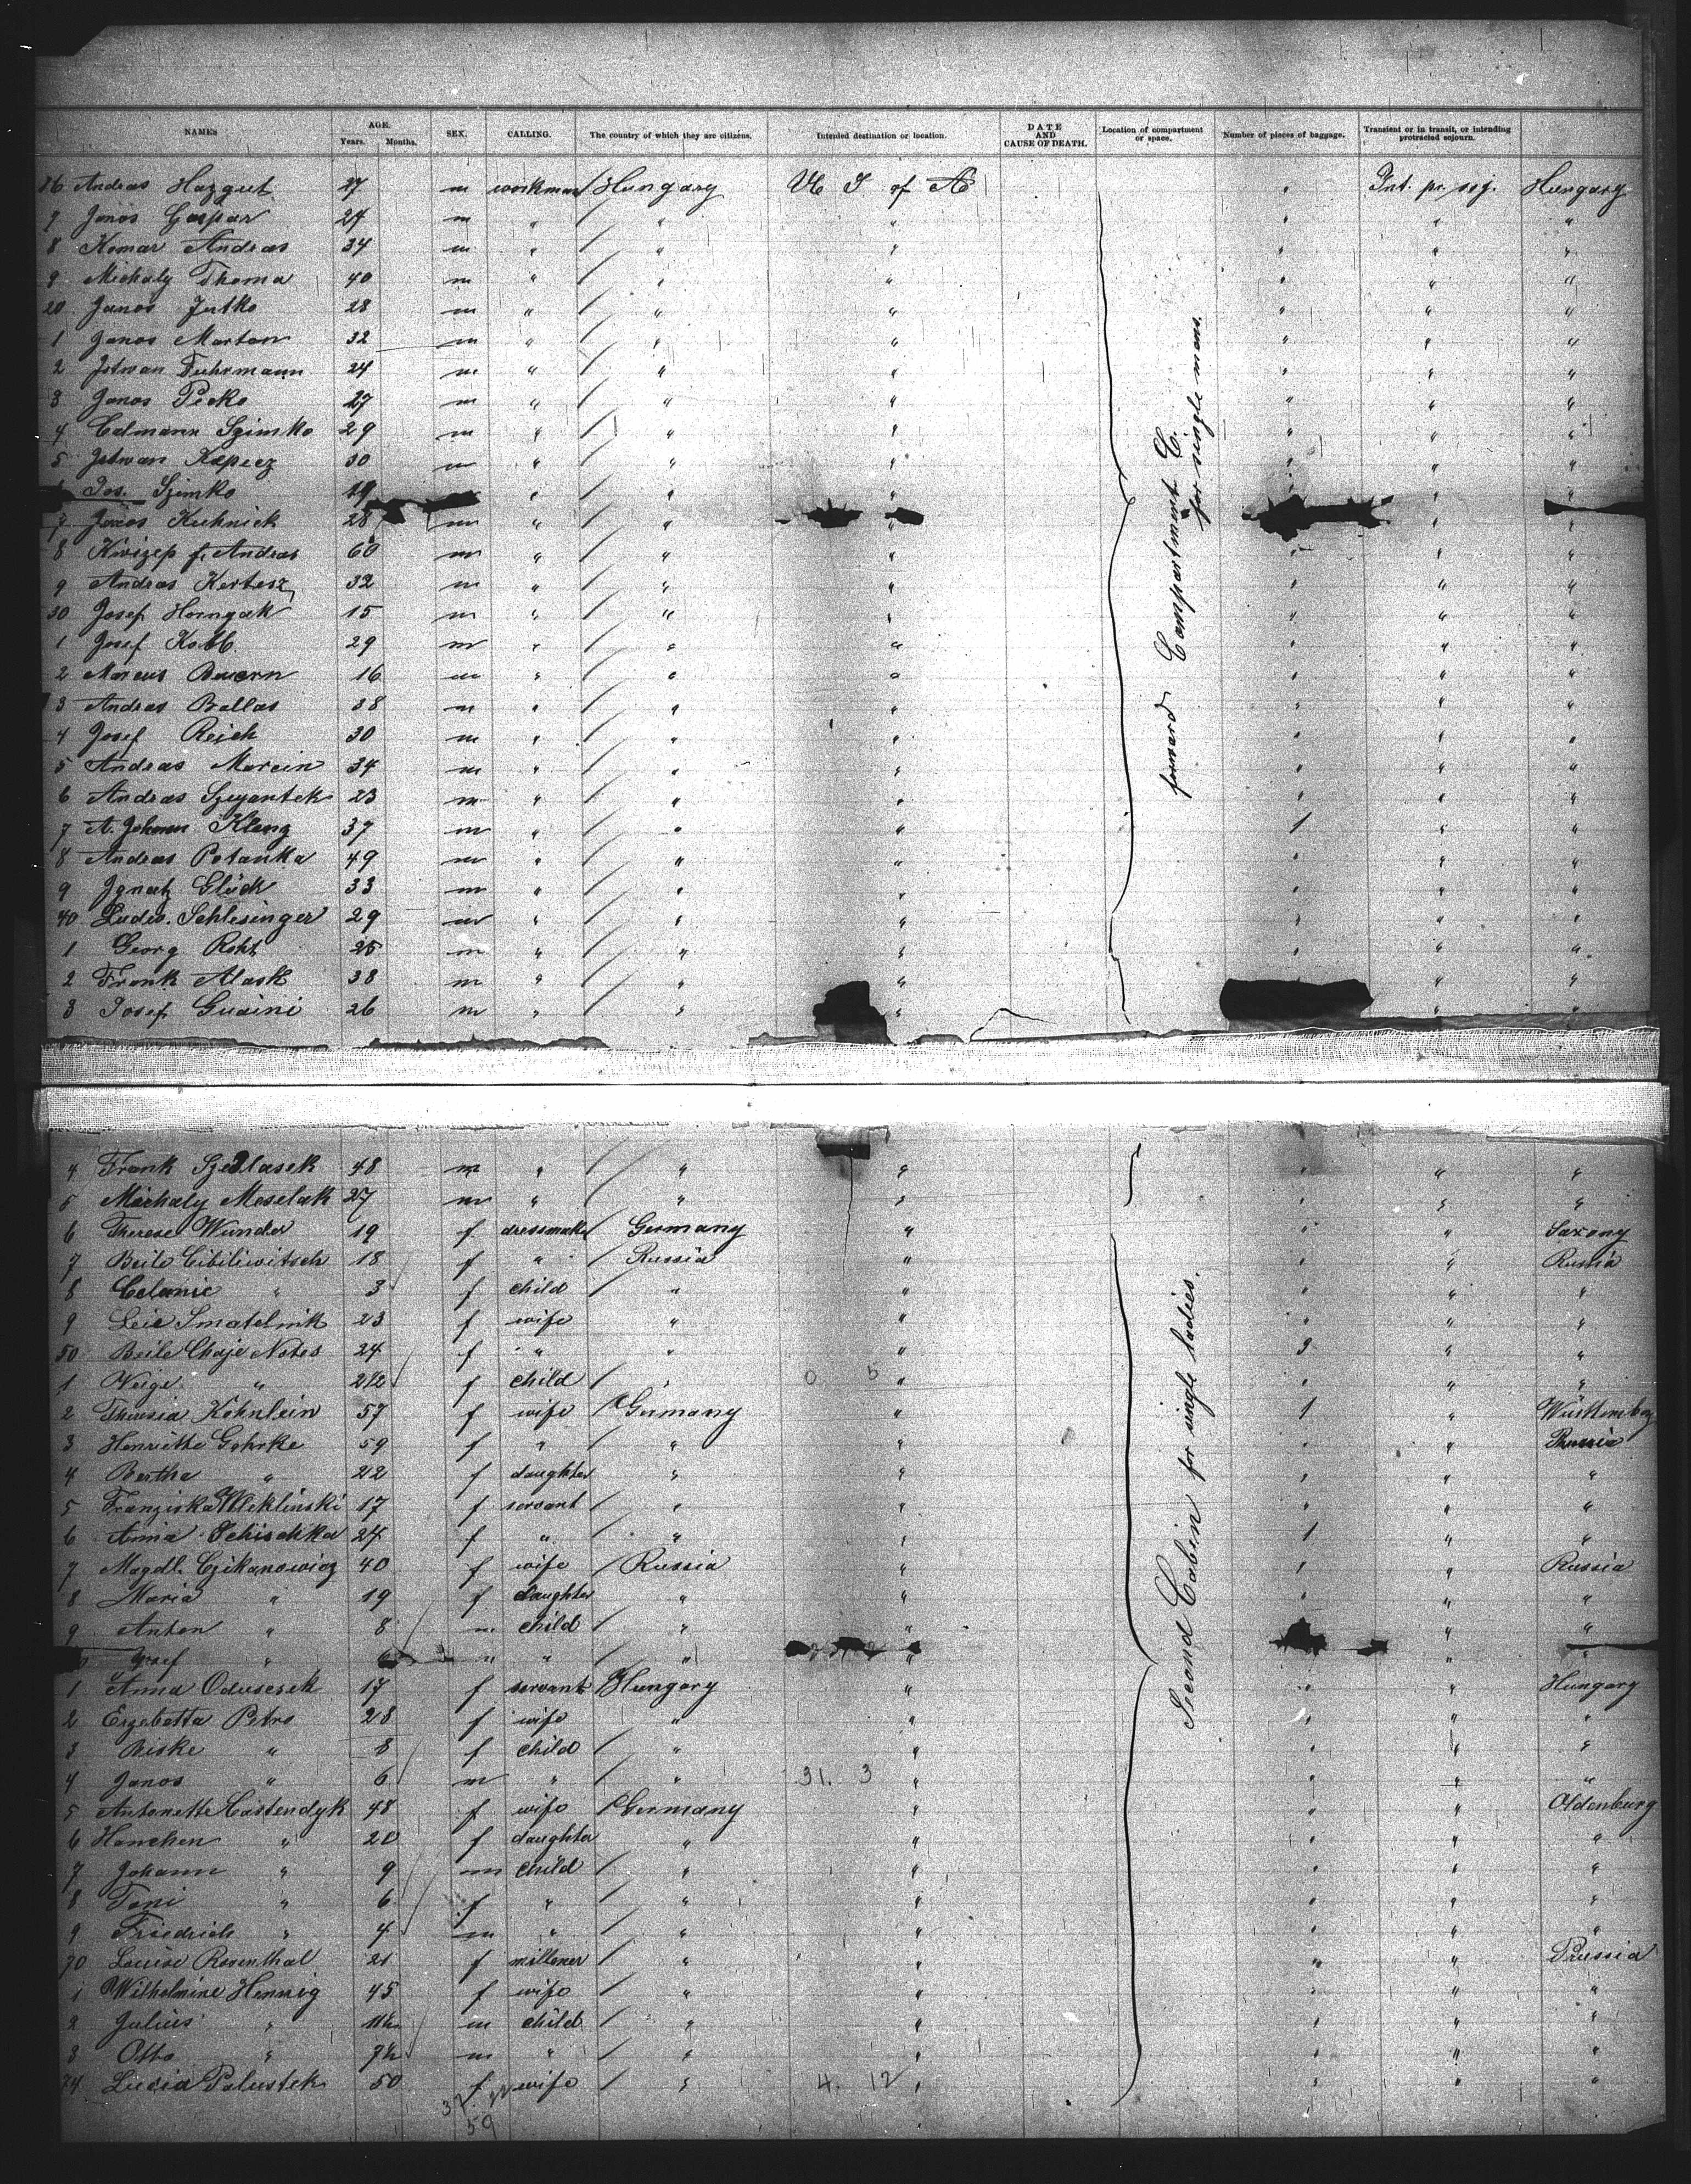 NAMES AGE. Years. Months. SEX. CALLING. The country of which they are citizens. Intended destination or location. DATE AND CAUSE OF DEATH. Location of compartment or space. Number of pieces of baggage. Transient or in transit, or intending protracted sojourn.
16 Andras Hazgut 27 m workman Hungary U S of A " Int. pr. soj. Hungary
7 Janos Gaspar 24 m " " " " " "
8 Komar Andras 34 m " " " " " "
9 Michaly Thoma 40 m " " " " " "
20 Janos Jutko 28 m " " " " " "
1 Janos Marton 32 m " " " " " "
2 Istvan Fuhrmann 24 m " " " " " "
3 Janos Pecko 27 m " " " " " "
4 Colmann Szimko 29 m " " " " " "
5 Istvan Kapecz 30 m " " " " " "
Jos. Szimko 19 " " " " " "
7 Janos Kuhnick 28 m " " " " "
8 Andras 60 m " " " " " "
9 Andras Kertesz 32 m " " " " " "
30 Josef Horngak 15 m " " " " " "
1 Josef Kobb 29 m " " " " " "
2 Marcus Bauern 16 m " " " " " "
3 Andras Ballas 38 m " " " " " "
4 Josef Reich 30 m " " " " " "
5 Andras Marcin 34 m " " " " " "
6 Andras Szuyantek 23 m " " " " " "
7 A. Johann Klang 37 m " " " 1 " "
8 Andras Potanka 49 m " " " " " "
9 Ignatz Glück 33 m " " " " " "
40 Ludw. Schlesinger 29 m " " " " " "
1 Georg Roht 25 m " " " " " "
2 Frank Alask 38 m " " " " "
3 Josef Gudini 26 m " " " " "
forward Compartment C.
for single mans.
4 Frank Szedlasek 48 m " " " " " "
5 Michaly Moselak 27 m " " " " " "
6 Therese Wunder 19 f dressmaker Germany " " " Saxony
7 Beile Cibiliwitsch 18 f " Russia " " " Russia
8 Colomie " 3 f child " " " " "
9 Leie Smatelnik 23 f wife " " " " "
50 Beile Chaje Notes 24 f " " " 3 " "
1 Neige " 2 1/2 f child " 0 5 " " " "
2 Theresia Köhnlein 57 f wife Germany " 1 " Württemberg
3 Henriette Gohrke 59 f " " " " " Prussia
4 Bertha " 22 f daughter " " " " "
5 Franziska Weklinski 17 f servant " " " " "
6 Anna Schischka 24 f " " " 1 " "
7 Magdl. Czikanowicz 40 f wife Russia " 1 " Russia
8 Maria " 19 f daughter " " " " "
9 Anton " 8 m child " " " "
Josef " 6 " " " " " "
1 Anna Oduscsek 17 f servant Hungary " " " Hungary
2 Erzebetta Petro 28 f wife " " " " "
3 Beske " 8 f child " " " " "
4 Janos " 6 m " " 31. 3 " " " "
5 Antonette Castendyk 48 f wife Germany " " " Oldenburg
6 Hanchen " 20 f daughter " " " " "
7 Johann " 9 m child " " " " "
8 Toni " 6 f " " " " " "
9 Friedrich " 4 m " " " " " "
70 Louise Rosenthal 21 f millener " " " " Prussia
1 Wilhelmine Hennig 45 f wife " " " " "
2 Julius " 11 1/2 m child " " " " "
3 Otto " 7 1/2 m " " " " " "
74 Lucia Palustek 50 f wife " 4. 12 " " " "
Second Cabin for single ladies.
59